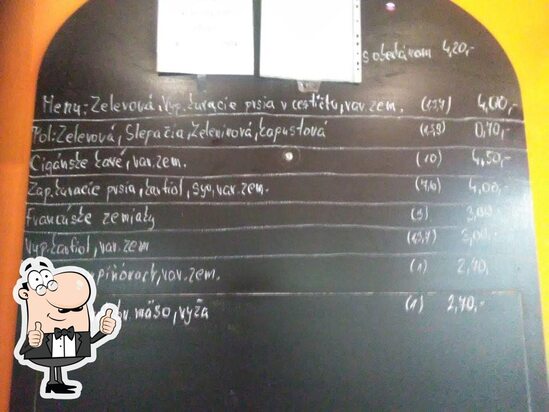 s obedárom 4,20,-
Menu: Zelerová, Vyp. kuracie prsia v cestíčku, var. zem. (1,3,7) 4,00,-
Pol: Zelerová, Slepačia, Zeleninová, kapustová (1,3,9) 0,70,-
Cigánske kavé, var. zem. (10) 4,50,-
Zap. kuracie prsia, karfiol, syr, var. zem. 4,00,-
Francúzke zemiaky (3) 3,00
Vyp. karfiol, var. zem (1,3,7) 3,00,-
var. zem. (1) 2,70,
mäso, ryža (1) 2,70,-